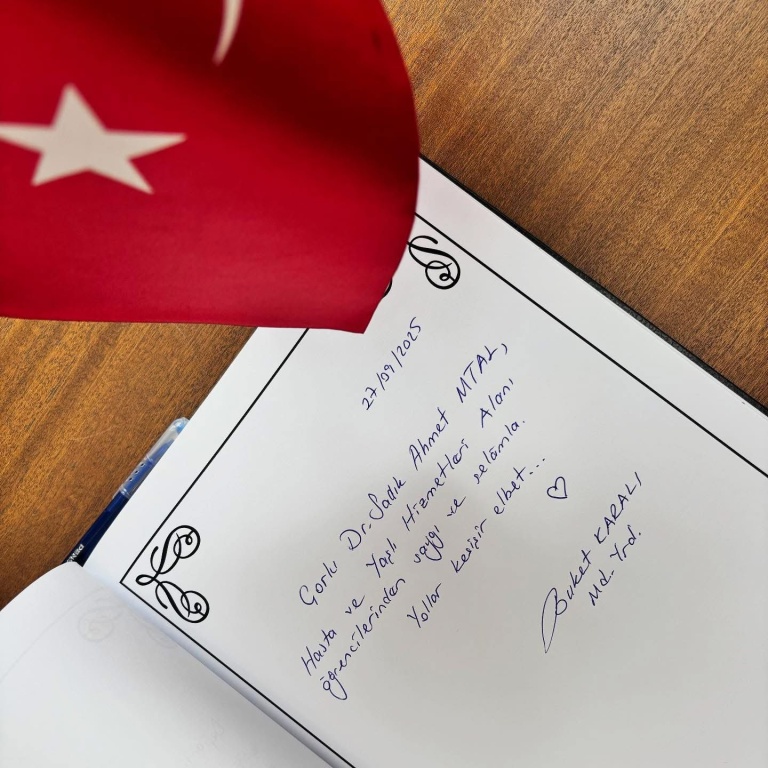 27/09/2025
Çorlu Dr. Sadık Ahmet MTAL,
Hasta ve Yaşlı Hizmetleri Alanı
öğrencilerinden saygı ve selâmla.
Yollar kesişir elbet...
Buket KARALI
Md. Yrd.